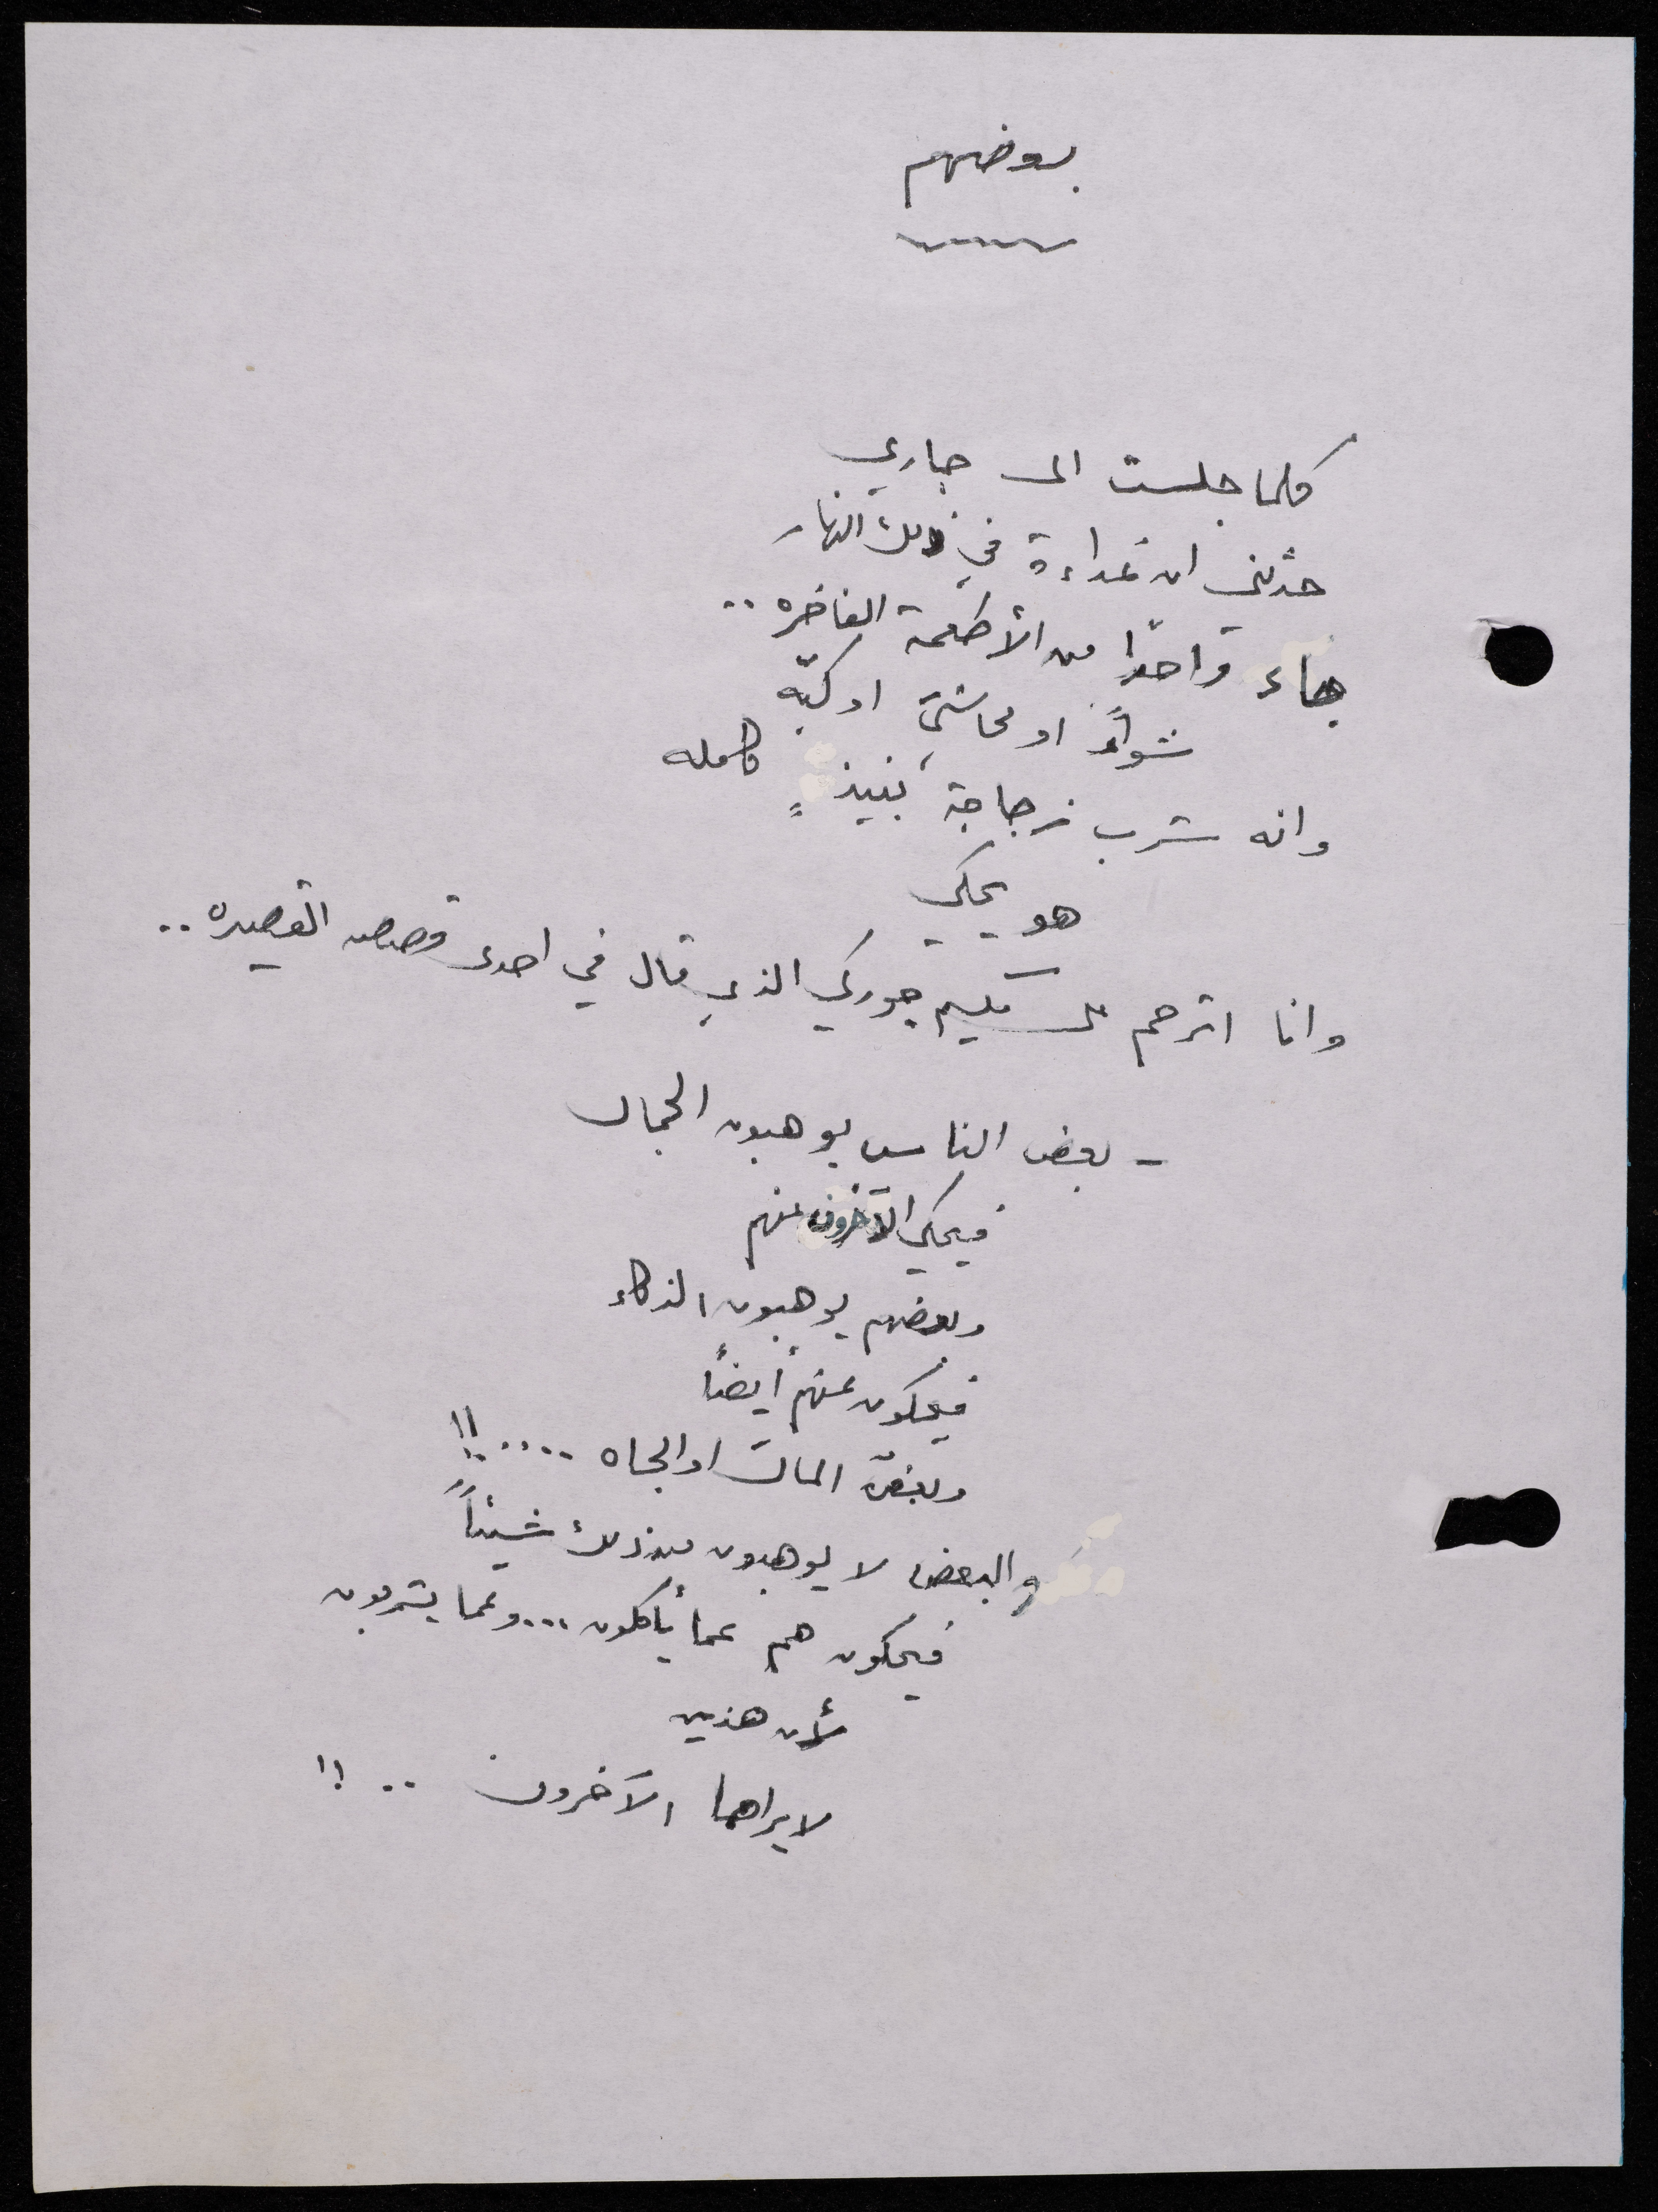 بعضهم
كلما جلست الى جاري
حدثني ان غداءه في ذلك النهار
جاء واحدًا من الأطعمة الفاخره ..
شواءً او محاشيَ او كبّه
وانه شرب زجاجة نبيذٍ كامله
هو يحكي
وانا اترحم على مكسيم جوركي الذي قال في احدى قصصه القصيره ..
- بعض الناس يوهبون الجمال
فيحكي الآخرون عنهم
وبعضهم يوهبون الذكاء
فيحكون عنهم أيضاً
وبعض المال او الجاه .... !!
والبعض لا يوهبون من ذلك شيئاً
فيحكون هم عما يأكلون ... وعما يشربون
لأن هذين
لا يراهما الآخرون .. !!